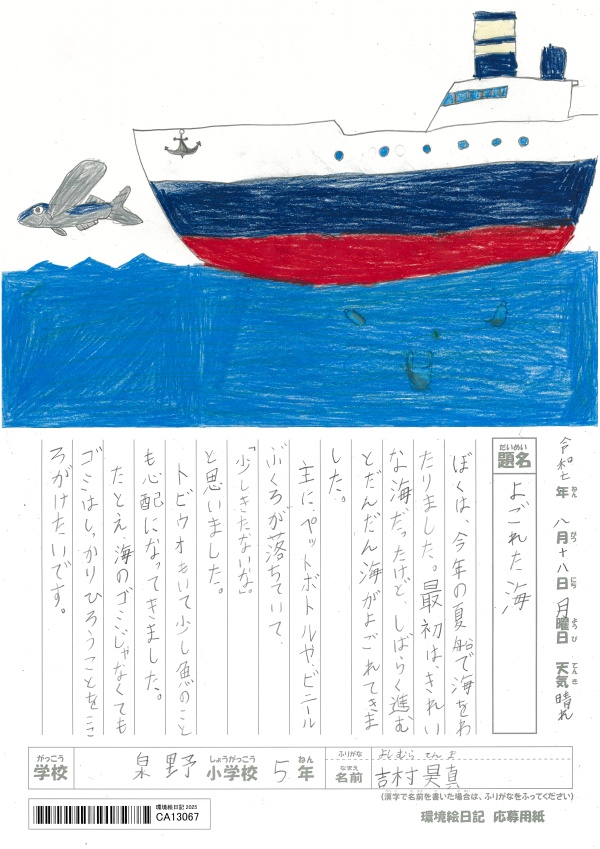 令和七年 八月十八日 月曜日 天気 晴れ
ねん がつ にち ようび てんき
だいめい
題名 よごれた海
ぼくは、今年の夏船で海をわ
たりました。最初は、きれい
な海だったけど、しばらく進む
とだんだん海がよごれてきま
した。
主に、ペットボトルや、ビニール
ぶくろが落ちていて、
「少しきたないな。」
と思いました。
トビウオもいて少し魚のこと
も心配になってきました。
たとえ、海のゴミじゃなくても
ゴミはしっかりひろうことをここ
ろがけたいです。
がっこう しょうがっこう ねん
学校 泉野 小学校 5年
ふりがな よしむら てんま
なまえ
名前 吉村 真
(漢字で名前を書いた場合は、ふりがなをふってください)
環境絵日記 2025
CA13067
環境絵日記 応募用紙